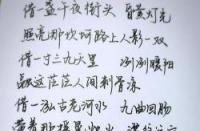 借一盏午夜街头 昏黄灯光
照亮那坎坷路上人影一双
借一寸三九天里 冽冽暖阳
融这茫茫人间刺骨凉
借一泓古老河水 九曲回肠
带着那